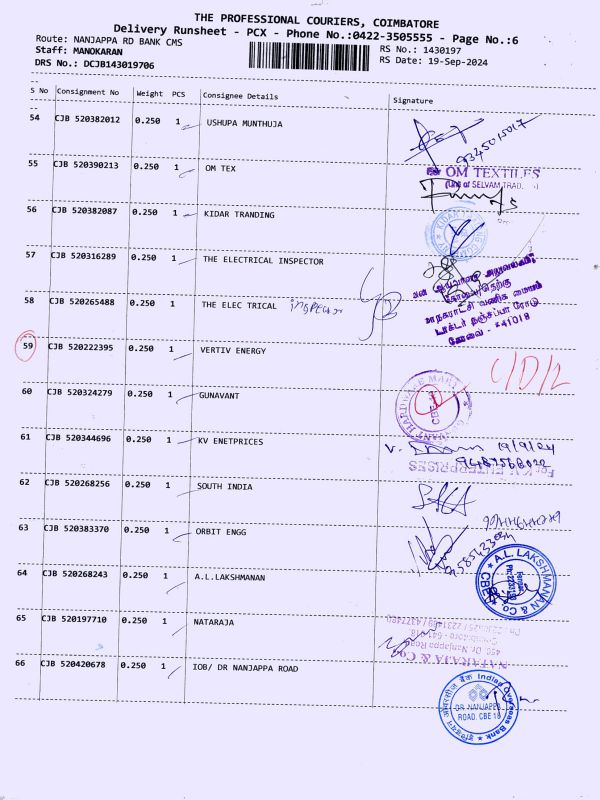 THE PROFESSIONAL COURIERS, COIMBATORE
Delivery Runsheet - PCX - Phone No.:0422-3505555 - Page No.:6
Route: NANJAPPA RD BANK CMS
RS No.: 1430197
Staff: MANOKARAN
RS Date: 19-Sep-2024
DRS No.: DCJB143019706
S No Consignment No Weight PCS Consignee Details Signature
54 CJB 520382012 0.250 1 USHUPA MUNTHUJA
9345015017
55 CJB 520390213 0.250 1 OM TEX
OM TEXTILES
(Unit of SELVAM TRAD
56 CJB 520382087 0.250 1 KIDAR TRANDING
57 CJB 520316289 0.250 1 THE ELECTRICAL INSPECTOR
58 CJB 520265488 0.250 1 THE ELEC TRICAL inspector
கோவை - 641018
59 CJB 520222395 0.250 1 VERTIV ENERGY
C/D/L
60 CJB 520324279 0.250 1 GUNAVANT
HARDWARE MART
CBE
61 CJB 520344696 0.250 1 KV ENETPRICES
19/9/24
For K.V. ENTERPRISES
62 CJB 520268256 0.250 1 SOUTH INDIA
63 CJB 520383370 0.250 1 ORBIT ENGG
64 CJB 520268243 0.250 1 A.L.LAKSHMANAN
A.L. LAKSHMANAN & Co.
CBE
65 CJB 520197710 0.250 1 NATARAJA
NATARAJA & Co
450, Dr. Nanjappa Road
Coimbatore - 641 018
66 CJB 520420678 0.250 1 IOB/ DR NANJAPPA ROAD
इंडियन ओवरसीज़ बैंक Indian Overseas Bank
DR NANJAPPA
ROAD, CBE 18